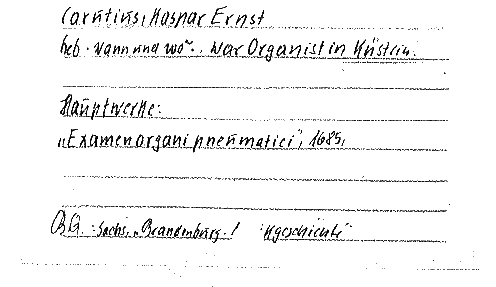 Carutius, Kaspar Ernst
geb. wann und wo?. War Organist in Küstrin.
Hauptwerke:
„Examen organi pneumatici“, 1685,
BQ.: Sachs, „Brandenburg.! Kgeschichte“